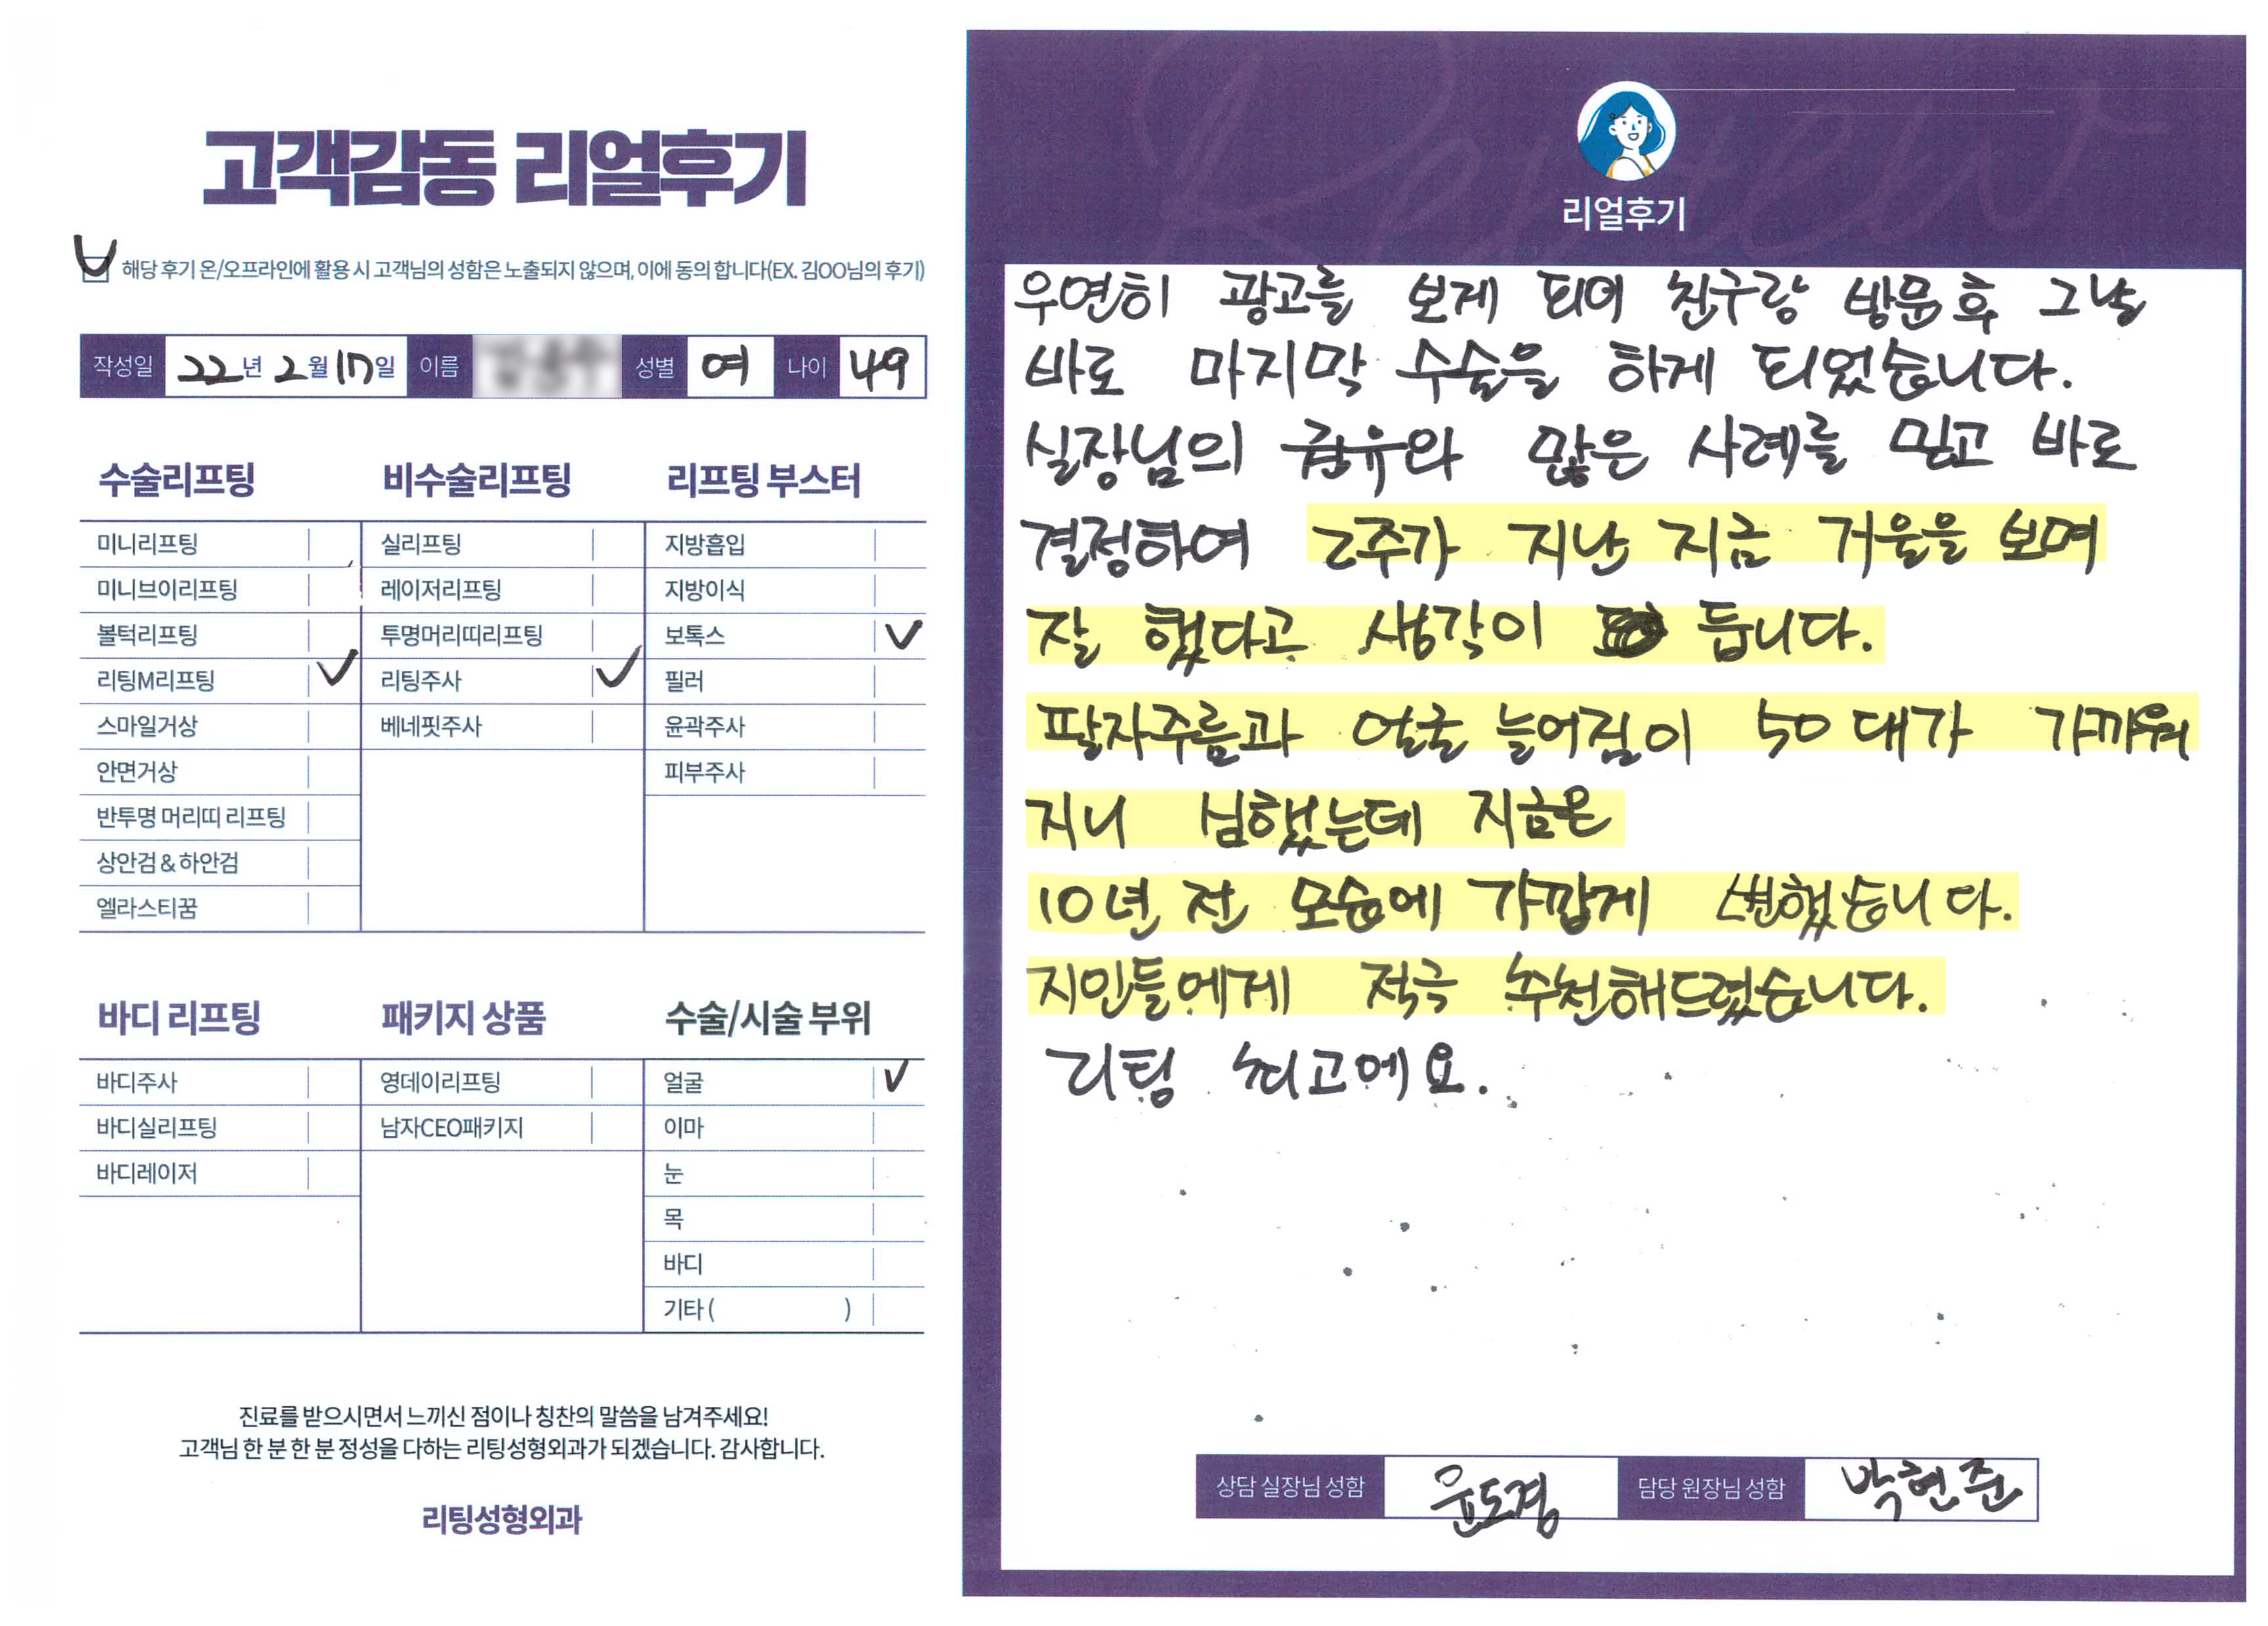 고객감동 리얼후기
해당 후기 온/오프라인에 활용 시 고객님의 성함은 노출되지 않으며, 이에 동의 합니다(EX. 김OO님의 후기)
작성일 22년 2월 17일 이름 성별 여 나이 49
수술리프팅
미니리프팅
미니브이리프팅
볼턱리프팅
리팅M리프팅 ✓
스마일거상
안면거상
반투명 머리띠 리프팅
상안검 & 하안검
엘라스티꿈
비수술리프팅
실리프팅
레이저리프팅
투명머리띠리프팅
리팅주사 ✓
베네핏주사
리프팅 부스터
지방흡입
지방이식
보톡스 ✓
필러
윤곽주사
피부주사
바디 리프팅
바디주사
바디실리프팅
바디레이저
패키지 상품
영데이리프팅
남자CEO패키지
수술/시술 부위
얼굴 ✓
이마
눈
목
바디
기타 ( )
진료를 받으시면서 느끼신 점이나 칭찬의 말씀을 남겨주세요!
고객님 한 분 한 분 정성을 다하는 리팅성형외과가 되겠습니다. 감사합니다.
리팅성형외과
Review
리얼후기
우연히 광고를 보게 되어 친구랑 방문 후 그날
바로 마지막 수술을 하게 되었습니다.
실장님의 권유와 많은 사례를 믿고 바로
결정하여 2주가 지난 지금 거울을 보며
잘 했다고 생각이 듭니다.
팔자주름과 얼굴 늘어짐이 50대가 가까워
지니 심했는데 지금은
10년 전 모습에 가깝게 변했습니다.
지인들에게 적극 추천해드렸습니다.
리팅 최고에요.
상담 실장님 성함 윤도경 담당 원장님 성함 박현준